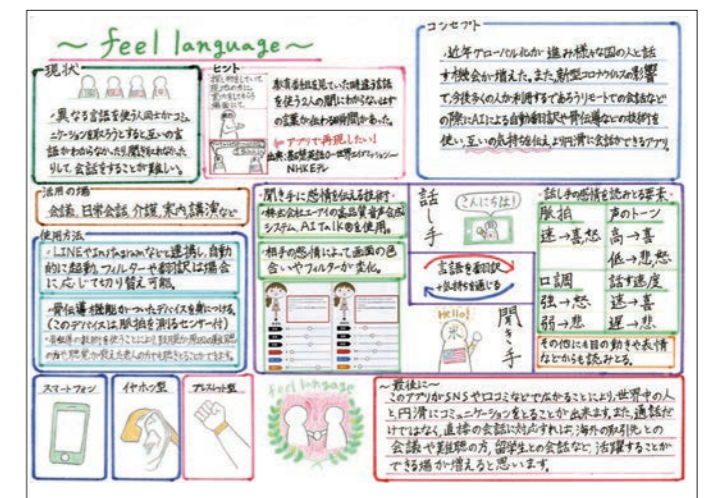 ~ feel language ~
現状
・異なる言語を使う人同士がコミュ
ニケーションを取ろうとすると互いの言
語がわからなかったり、聞き取れなかった
りして、会話をすることが難しい。
ヒント
教育番組を見ていた時違う言語
を使う2人の間にわからないはず
の言葉が伝わる瞬間があった。
アプリで再現したい!
出典:基礎英語0 ～世界エイゴミッション～
NHK Eテレ
コンセプト
・近年グローバル化が進み様々な国の人と話
す機会が増えた。また、新型コロナウイルスの影響
で、今後多くの人が利用するであろうリモートでの会話など
の際にAIによる自動翻訳や骨伝導などの技術を
使い、互いの気持ちを伝え、より円滑に会話ができるアプリ
活用の場
会議、日常会話、介護、案内、講演など
使用方法
・LINEやInstagramなどと連携し、自動
的に起動。フィルターや翻訳は場合
に応じて切り替え可能。
・骨伝導機能がついたデバイスを身につける。
(このデバイスは脈拍を測るセンサー付)
・聞き手に感情を伝える技術・
・株式会社エーアイの高品質音声合成
システム、AITalk®を使用。
・相手の感情によって画面の色
合いやフィルターが変化。
話し手
こんにちは!
言語を翻訳
+気持ちを通じる
Hello!
聞き手
・話し手の感情を読みとる要素・
脈拍 声のトーン
速→喜、怒 高→喜
低→悲、怒
口調 話す速度
強→怒 速→喜
弱→悲 遅→悲
その他にも目の動きや表情
などからも読みとる。
スマートフォン
イヤホン型
ブレスレット型
feel language
～最後に～
このアプリがSNSや口コミなどで広がることにより、世界中の人
と円滑にコミュニケーションをとることが出来ます。また、通話だ
けではなく、直接の会話に対応すれば、海外の取引先との
会議や難聴の方、留学生との会話など、活躍することが
できる場が増えると思います。